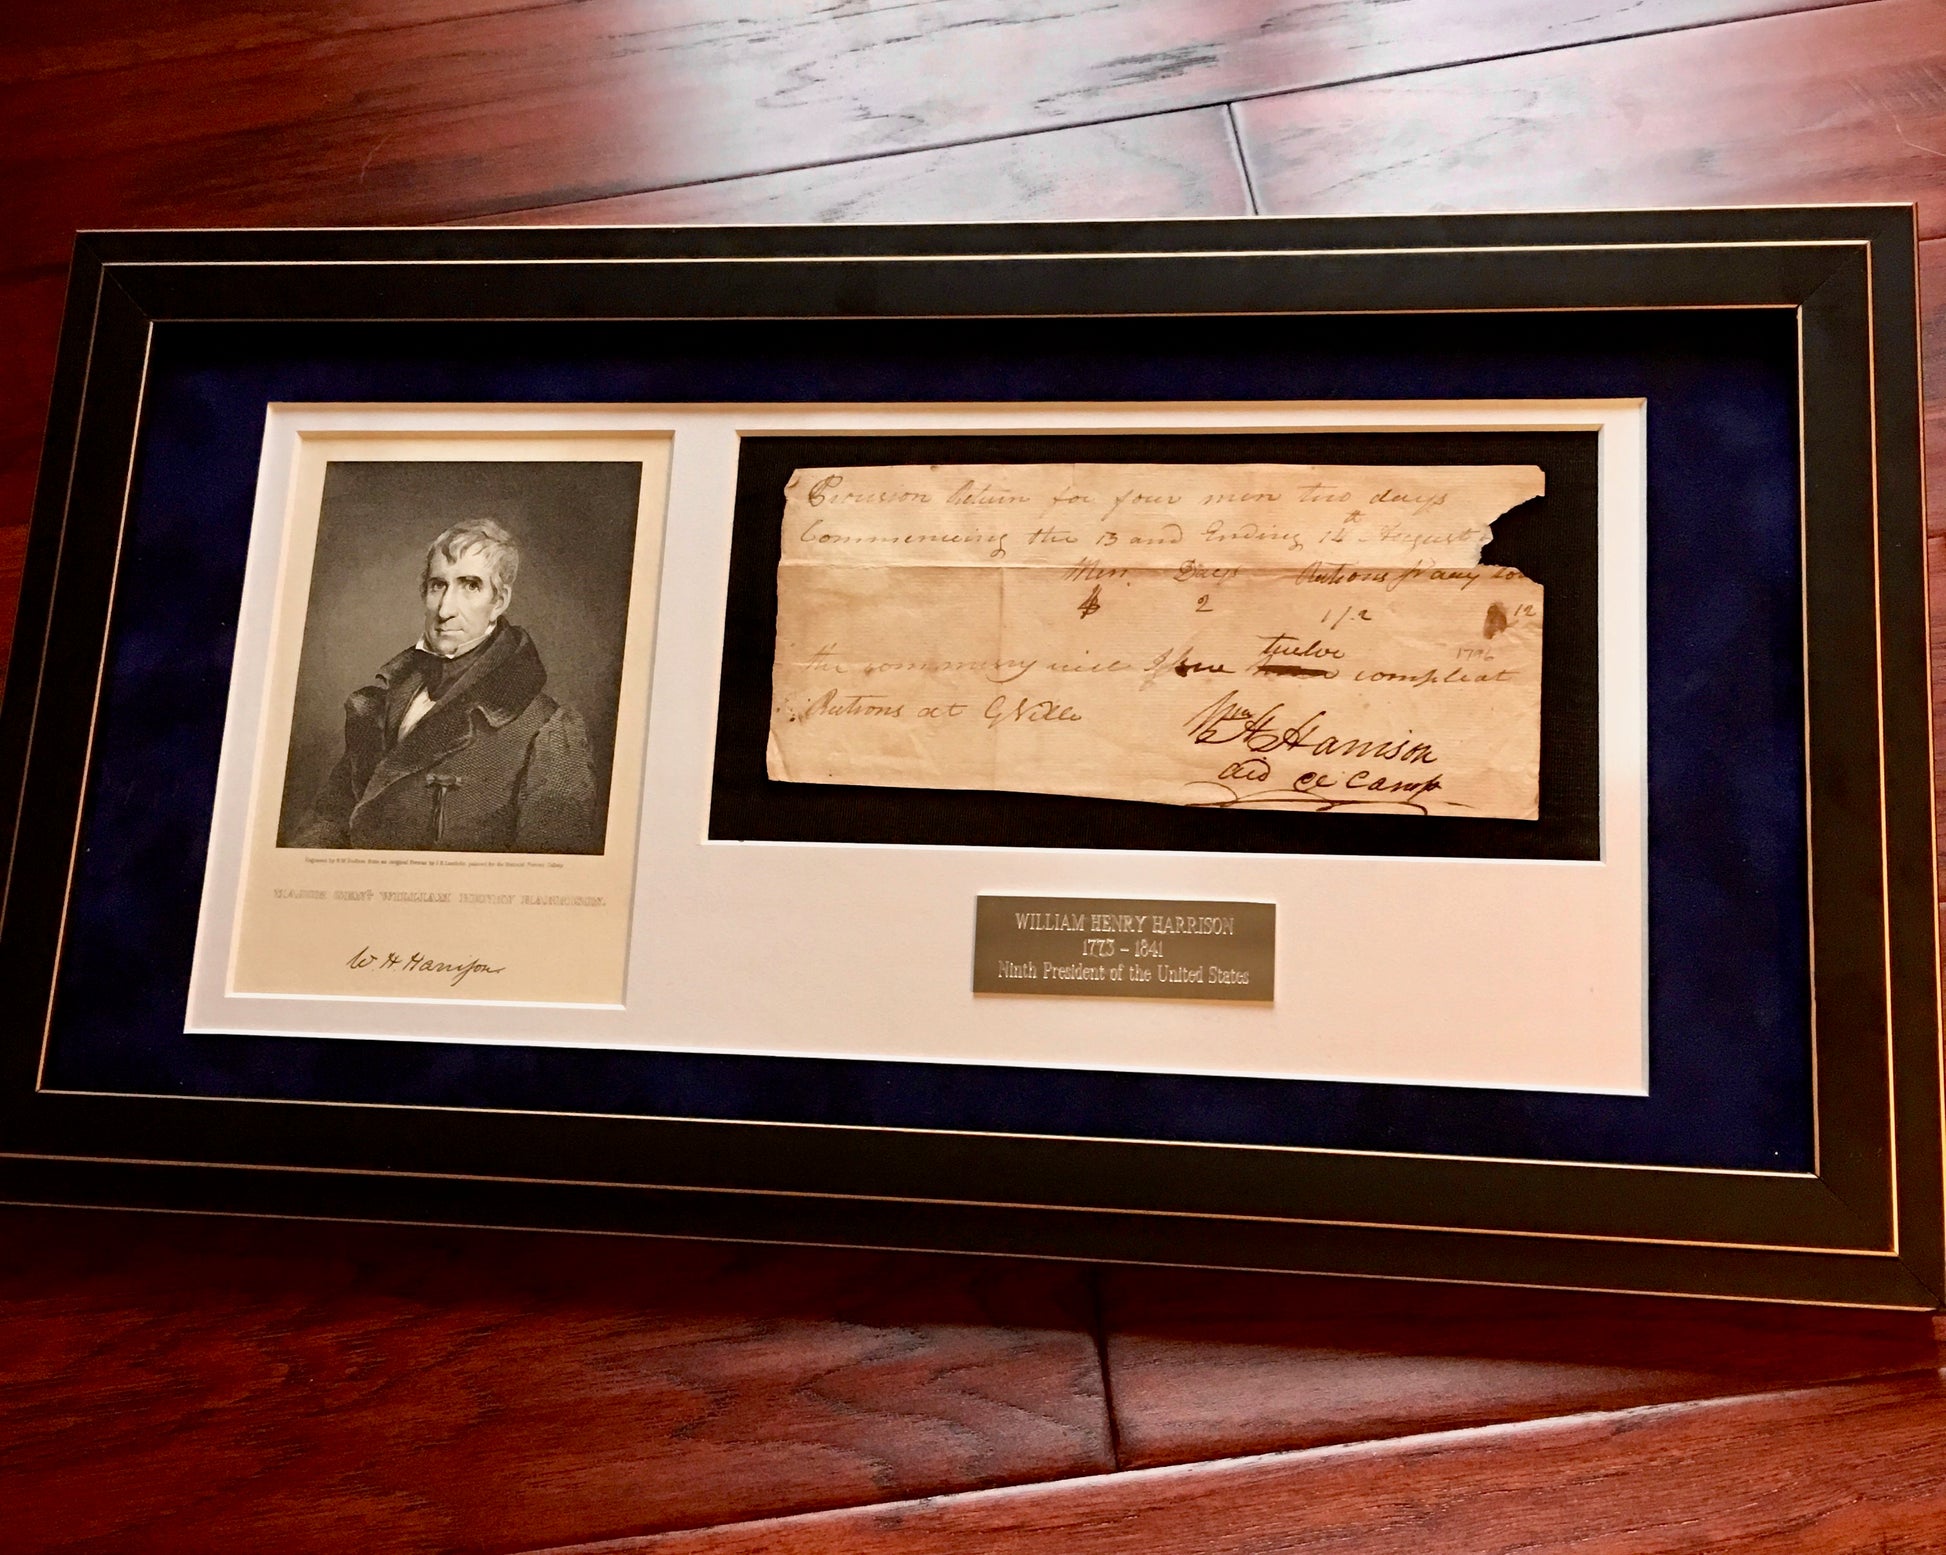 Engraved by R.W. Dodson from an original Picture by J.R. Lambdin painted for the National Portrait Gallery
MAJOR GENL. WILLIAM HENRY HARRISON.
W. H. Harrison
Provision Return for four men two days
Commencing the 13 and Ending 14th August
Men Days Rations pr day
4 2 1 1/2 12
1796
twelve
the commissary will Issue compleat
Rations at GVille
Wm H Harrison
aid de Camp
WILLIAM HENRY HARRISON
1773 – 1841
Ninth President of the United States